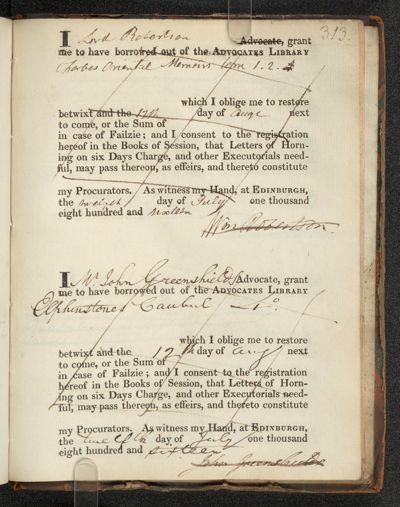 313.
I Lord Robertson Advocate, grant
me to have borrowed out of the ADVOCATES LIBRARY
Forbes Oriental Memoirs Vols 1. 2.
which I oblige me to restore
betwixt and the 12th day of Augt next
to come, or the Sum of
in case of Failzie; and I consent to the registration
hereof in the Books of Session, that Letters of Horn-
ing on six Days Charge, and other Executorials need-
ful, may pass thereon, as effeirs, and thereto constitute
my Procurators. As witness my Hand, at EDINBURGH,
the twelfth day of July one thousand
eight hundred and sixteen
Wm Robertson.
I Mr. John Greenshields Advocate, grant
me to have borrowed out of the ADVOCATES LIBRARY
Elphinstones Caubul 4o.
which I oblige me to restore
betwixt and the 12th day of Augt next
to come, or the Sum of
in case of Failzie; and I consent to the registration
hereof in the Books of Session, that Letters of Horn-
ing on six Days Charge, and other Executorials need-
ful, may pass thereon, as effeirs, and thereto constitute
my Procurators. As witness my Hand, at EDINBURGH,
the twelfth day of July one thousand
eight hundred and sixteen
John Greenshields